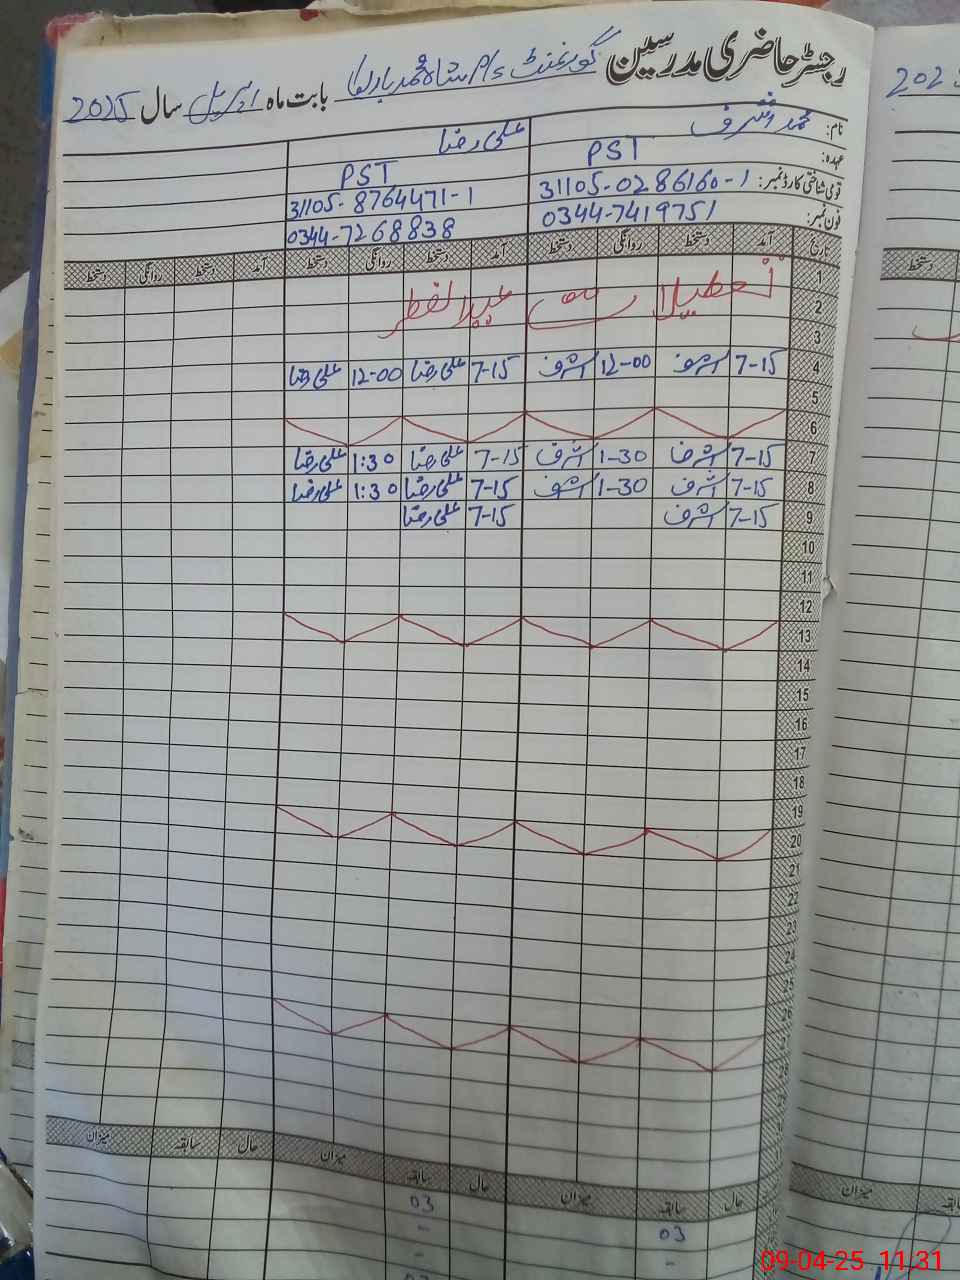 رجسٹر حاضری مدرسین گورنمنٹ P/S شاہ محمد بابت ماہ اپریل سال 2025
نام: محمد اشرف علی رضا
عہدہ: PST PST
قومی شناختی کارڈ نمبر: 31105-0286160-1 31105-8764471-1
فون نمبر: 0344-7419751 0344-7268838
تاریخ آمد دستخط روانگی دستخط آمد دستخط روانگی دستخط آمد دستخط روانگی دستخط
1 تعطیلات عید الفطر
2
3
4 7-15 اشرف 12-00 اشرف 7-15 علی رضا 12-00 علی رضا
5
6
7 7-15 اشرف 1-30 اشرف 7-15 علی رضا 1:30 علی رضا
8 7-15 اشرف 1-30 اشرف 7-15 علی رضا 1:30 علی رضا
9 7-15 اشرف 7-15 علی رضا
10
11
12
13
14
15
16
17
18
19
20
21
22
23
24
25
26
حال سابقہ میزان حال سابقہ میزان حال سابقہ میزان
03 03
- -
-
03
202
دستخط
میزان
09-04-25 11.31